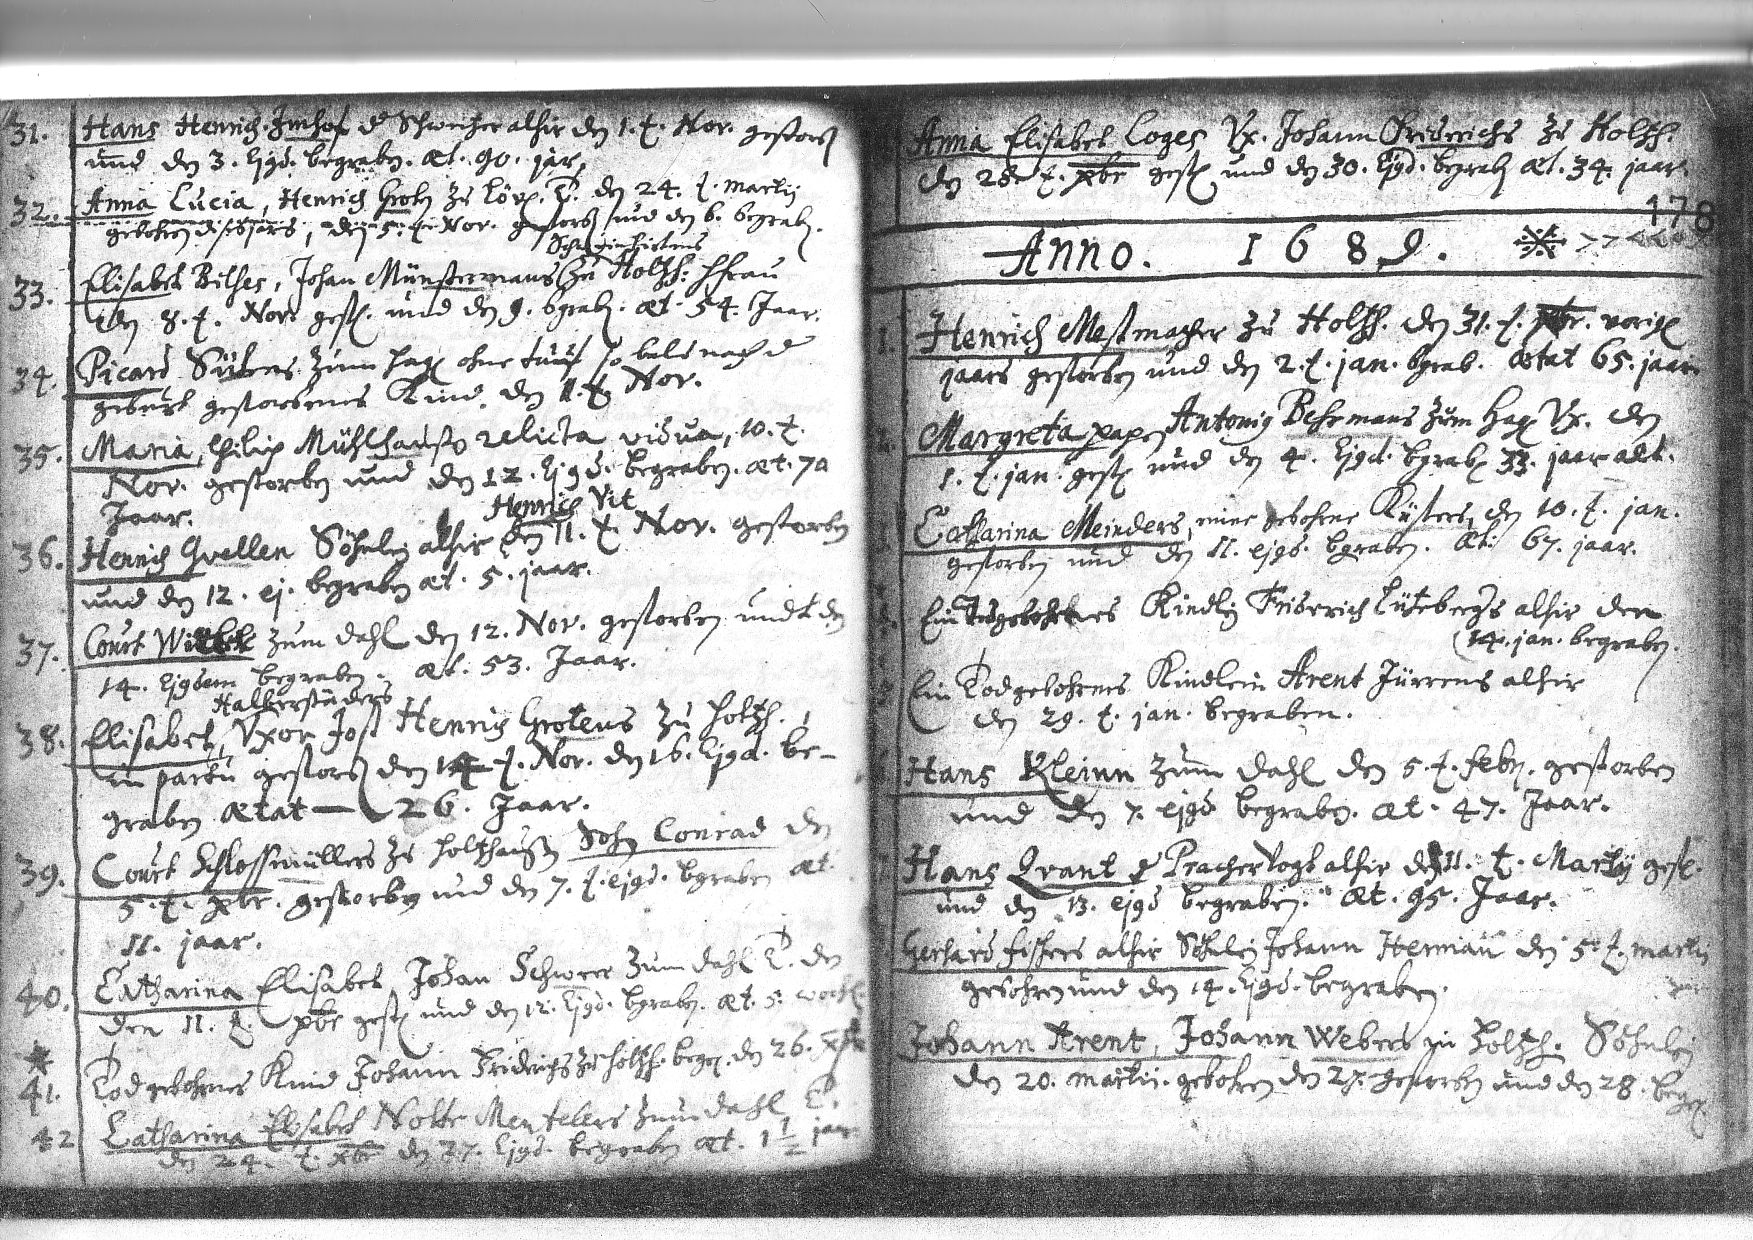 31. Hans Henrich Imhof d Schweitzer alhir den 1. t. Nov. gestorb
und den 3. Ejgd. begraben. æt. 90. jar,
32. Anna Lucia, Henrich Groten zu T. den 24. t. martij
gebohren dises jars, den 5. t. Nov. gestorb und den 6. begrab.
Schweinhirtens
33. Elisabet Bilses, Johan Münstermans zu Holtzh. hfrau
den 8. t. Nov. gest. und den 9. bgrab. æt. 54. Jaar.
34. Picard Sükens zum hag ohne tauf so bald nach d
geburt gestorbenes Kind. den 11. t. Nov.
35. Maria, Philip Mühlhausen relicta vidua, 10. t.
Nov. gestorben und den 12. Ejgd. begraben. æt. 70
Jaar.
Henrich Vit
36. Henrich Quellen Söhnlein alhir den 11. t. Nov. gestorben
und den 12. ej. begraben æt. 5. jaar.
37. Court zum dahl den 12. Nov. gestorben undt den
14. Ejgdem begraben. æt. 53. Jaar.
Halberstäders
38. Elisabet, Vxor Jost Henrich Grotens zu holtzh.,
in partu gestorb den 14 t. Nov. den 16. Ejgd. be-
graben ætat — 26. Jaar.
39. Court Schlossmüllers zu holthausen Sohn Conrad den
5. t. xbr. gestorben und den 7. t. ejgd. bgraben æt
11. jaar.
40. Catharina Elisabet, Johan Schwer zum dahl T. den
den 11. t. xbr gest. und den 12. Ejgd. bgraben. æt. 5. woch.
*
41. Todgebohrnes Kind Johann Fridrichs zu holtzh. begr. den 26. xbr
42 Catharina Elisabet Nolte Mentelers zum dahl T.
den 24. t. xbr den 27. Ejgd. begraben æt. 1 1/2 jaar
Anna Elisabet Loges Vx. Johann Friderichs zu Holtzh.
den 28 t. xbr gest. und den 30. Ejgd. begrab æt. 34. jaar.
178
Anno. 1689.
1. Henrich Mastmacher zu Holtzh. den 31. t. xbr. vorig
jaars gestorben und den 2. t. jan. bgrab. ætat 65. jaar
2. Margreta papen Antonig Behrmans zum hag Vx. den
1. t. jan. gest. und den 4. Ejgd. bgrab 33. jaar alt.
Catharina Meinders, eine gebohrne Küsters, den 10. t. jan.
gestorben und den 11. ejgd. bgraben. æt. 67. jaar.
Ein Todgebohrnes Kindlein Friderich Lütebergs alhir den
14. jan. begraben.
Ein Todgebohrnes Kindlein Arent Jürrens alhir
den 29. t. jan. begraben.
Hans Kleinn zum dahl den 5. t. feb. gestorben
und den 7. ejgd begraben. æt. 47. Jaar.
Hans Qvant d Prachervogt alhir den 11. t. Martij gest.
und den 13. ejgd begraben. æt. 95. Jaar.
Gerhard fischers alhir Söhnlein Johann Herman den 5. t. marti
gebohren und den 14. Ejgd. begraben.
Johann Arent, Johann Webers zu Holtzh. Söhnlein
den 20. martij. gebohren den 27. gestorben und den 28. begr.